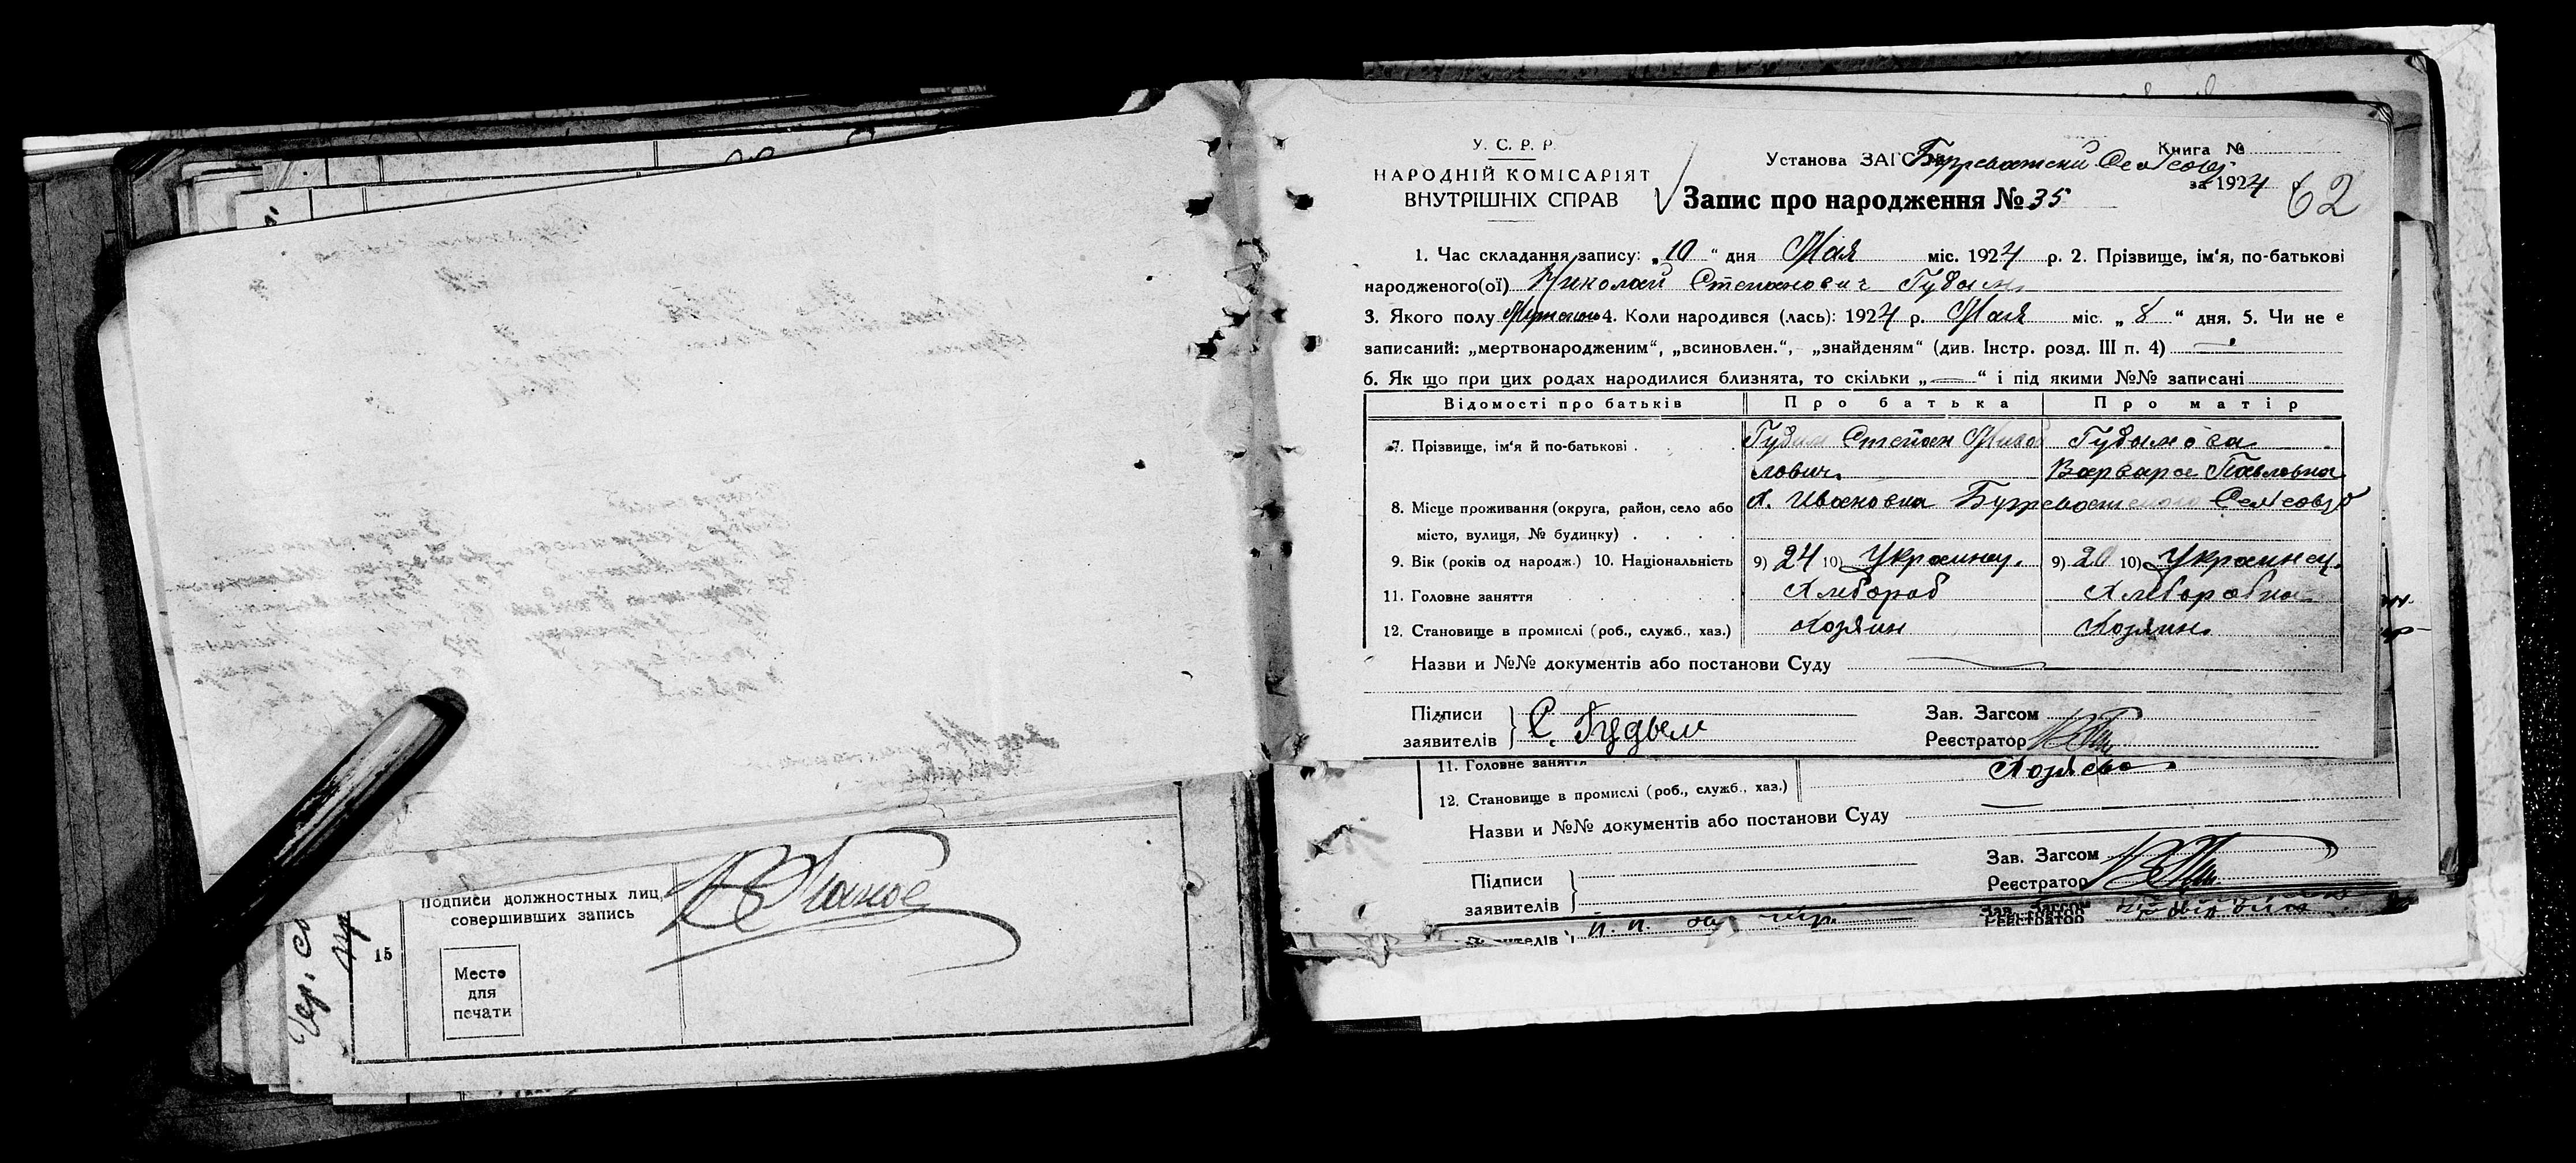 Подписи должностных лиц,
совершивших запись
15
Место
для
печати
У. С. Р. Р.
НАРОДНІЙ КОМІСАРІЯТ
ВНУТРІШНІХ СПРАВ
Книга №
Установа ЗАГС
за 1924
62
Запис про народження № 35
1. Час складання запису: „10“ дня Мая міс. 1924 р. 2. Прізвище, ім'я, по-батькові
народженого(ої) Николай Степанович Гудым
3. Якого полу 4. Коли народився (лась): 1924 р. Мая міс. „8“ дня. 5. Чи не є
записаний: „мертвонародженим“, „всиновлен.“, „знайденям“ (див. Інстр. розд. III п. 4) —
6. Як що при цих родах народилися близнята, то скільки „—“ і під якими №№ записані
Відомості про батьків Про батька Про матір
7. Прізвище, ім'я й по-батькові . . . Гудым Степан Михай Гудымова
лович. Варвара Павловна
8. Місце проживання (округа, район, село або Х. Ивановка
місто, вулиця, № будинку) . . . .
9. Вік (років од народж.) 10. Національність 9) 24 10) Украинец. 9) 20 10) Украинец.
11. Головне заняття . . . . . Хлебороб Хлеборобка
12. Становище в промислі (роб., служб., хаз.) Хозяин Хозяин.
Назви и №№ документів або постанови Суду —
Підписи
заявителів С. Гудым
Зав. Загсом
Реєстратор
11. Головне заняття
12. Становище в промислі (роб., служб., хаз.)
Назви и №№ документів або постанови Суду —
Підписи
заявителів
Зав. Загсом
Реєстратор
Зав. Загсом
Реєстратор